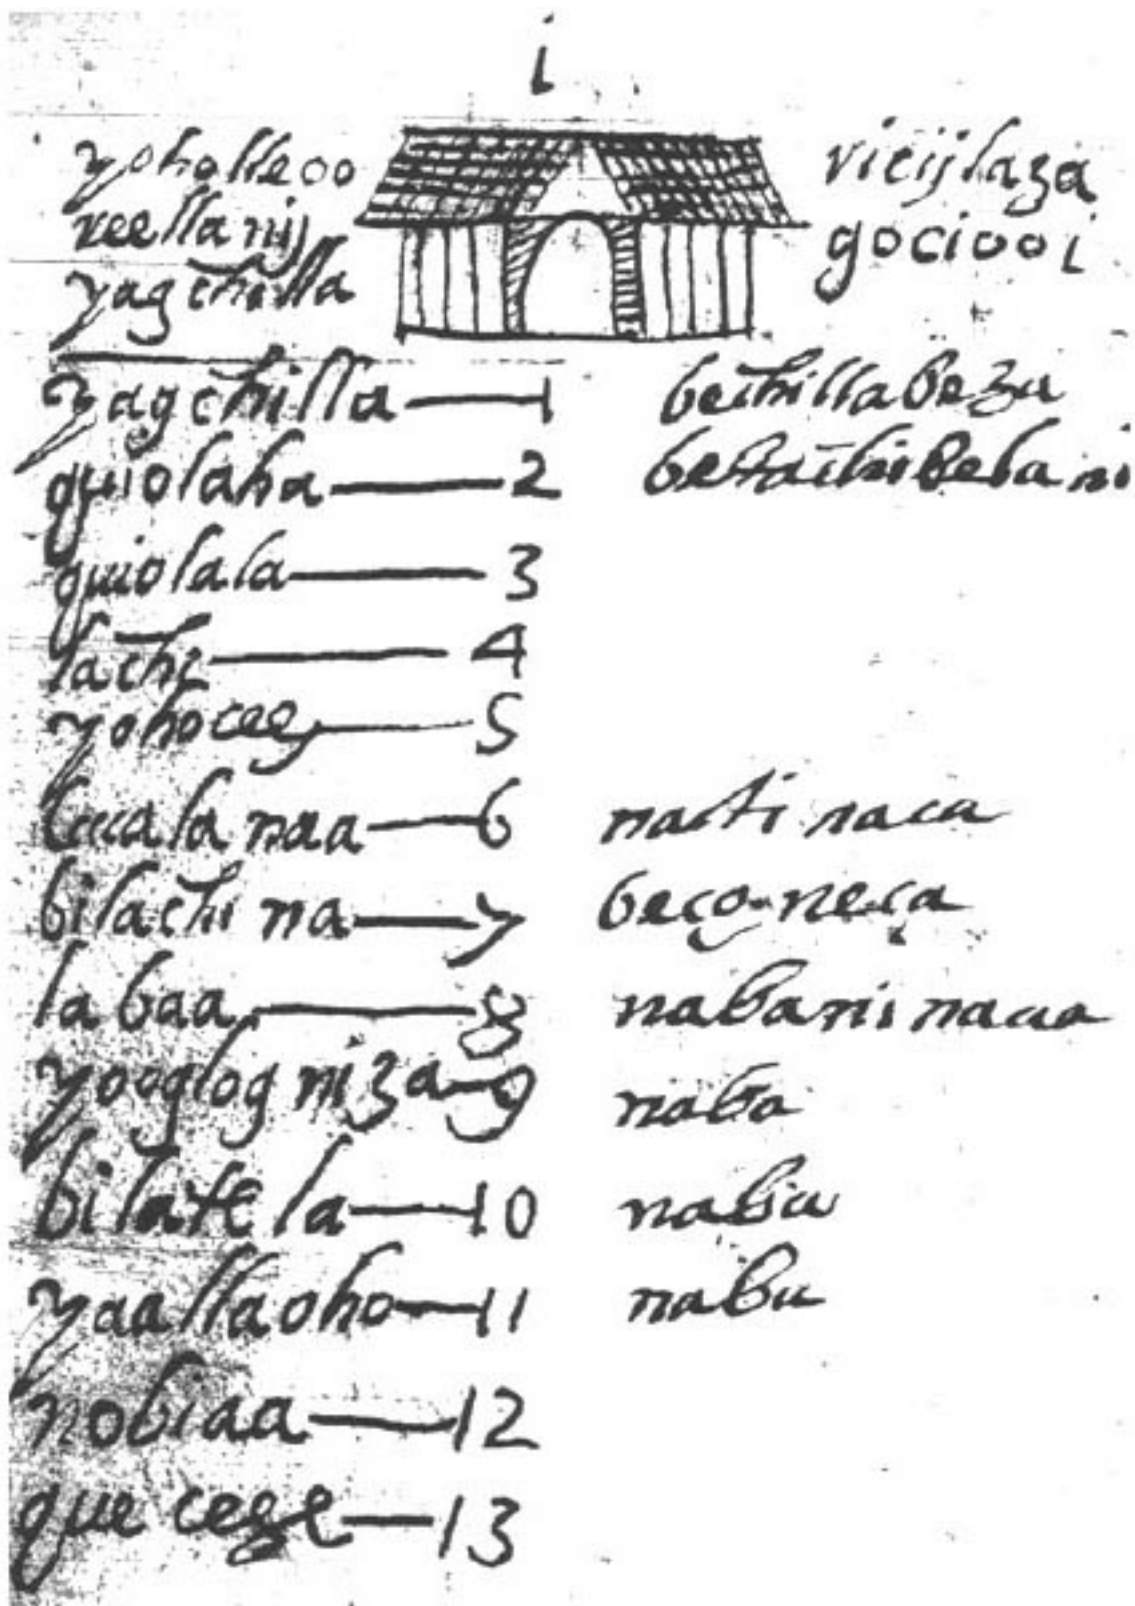 i
yoholleoo
reellanij
yagchilla
vicijlaza
gocioo i
yagchilla 1 bechillabeza
quiolaha 2
quiolala 3
lachi 4
yohocee 5
lucala naa 6 nacti naca
bilachi na 7 beço neça
labaa 8 nabanis nacaa
yooglog niza 9 naba
bilatela 10 naba
yaallaoho 11 naba
nobiaa 12
que ceze 13